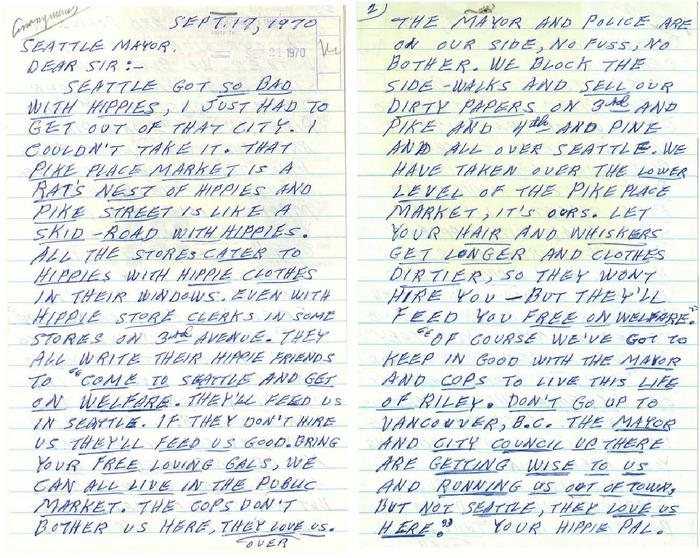 Anonymous
SEPT. 17, 1970
SEP 21 1970
SEATTLE MAYOR.
DEAR SIR :-
SEATTLE GOT SO BAD
WITH HIPPIES, I JUST HAD TO
GET OUT OF THAT CITY. I
COULDN'T TAKE IT. THAT
PIKE PLACE MARKET IS A
RAT'S NEST OF HIPPIES AND
PIKE STREET IS LIKE A
SKID-ROAD WITH HIPPIES.
ALL THE STORES CATER TO
HIPPIES WITH HIPPIE CLOTHES
IN THEIR WINDOWS. EVEN WITH
HIPPIE STORE CLERKS IN SOME
STORES ON 3rd AVENUE. THEY
ALL WRITE THEIR HIPPIE FRIENDS
TO "COME TO SEATTLE AND GET
ON WELFARE. THEY'LL FEED US
IN SEATTLE. IF THEY DON'T HIRE
US THEY'LL FEED US GOOD. BRING
YOUR FREE LOVING GALS, WE
CAN ALL LIVE IN THE PUBLIC
MARKET. THE COPS DON'T
BOTHER US HERE, THEY LOVE US.
OVER
2)
THE MAYOR AND POLICE ARE
ON OUR SIDE, NO FUSS, NO
BOTHER. WE BLOCK THE
SIDE-WALKS AND SELL OUR
DIRTY PAPERS ON 3rd AND
PIKE AND 4th AND PINE
AND ALL OVER SEATTLE. WE
HAVE TAKEN OVER THE LOWER
LEVEL OF THE PIKE PLACE
MARKET, IT'S OURS. LET
YOUR HAIR AND WHISKERS
GET LONGER AND CLOTHES
DIRTIER, SO THEY WONT
HIRE YOU — BUT THEY'LL
FEED YOU FREE ON WELFARE."
"OF COURSE WE'VE GOT TO
KEEP IN GOOD WITH THE MAYOR
AND COPS TO LIVE THIS LIFE
OF RILEY. DON'T GO UP TO
VANCOUVER, B.C. THE MAYOR
AND CITY COUNCIL UP THERE
ARE GETTING WISE TO US
AND RUNNING US OUT OF TOWN,
BUT NOT SEATTLE, THEY LOVE US
HERE." YOUR HIPPIE PAL.